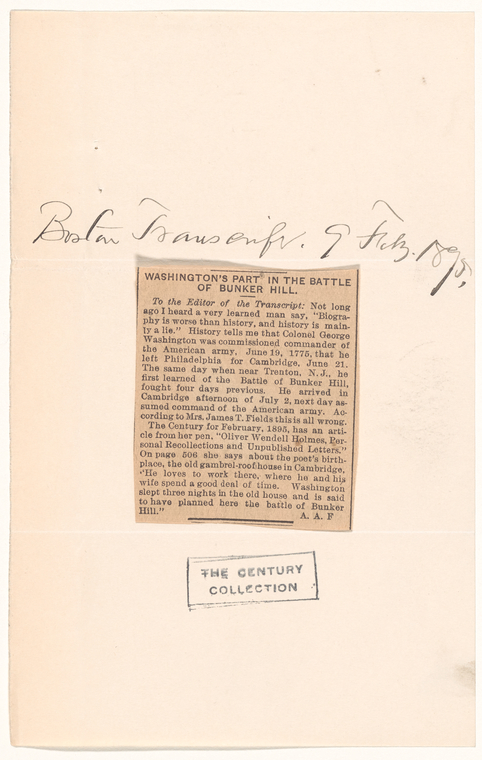 Boston Transcript. 9 Feb. 1895,
WASHINGTON'S PART IN THE BATTLE
OF BUNKER HILL.
To the Editor of the Transcript: Not long
ago I heard a very learned man say, "Biogra-
phy is worse than history, and history is main-
ly a lie." History tells me that Colonel George
Washington was commissioned commander of
the American army, June 19, 1775, that he
left Philadelphia for Cambridge, June 21.
The same day when near Trenton, N.J., he
first learned of the Battle of Bunker Hill,
fought four days previous. He arrived in
Cambridge afternoon of July 2, next day as-
sumed command of the American army. Ac-
cording to Mrs. James T. Fields this is all wrong.
The Century for February, 1895, has an arti-
cle from her pen, "Oliver Wendell Holmes, Per-
sonal Recollections and Unpublished Letters."
On page 506 she says about the poet's birth-
place, the old gambrel-roof house in Cambridge,
"He loves to work there, where he and his
wife spend a good deal of time. Washington
slept three nights in the old house and is said
to have planned here the battle of Bunker
Hill." A. A. F
THE CENTURY
COLLECTION